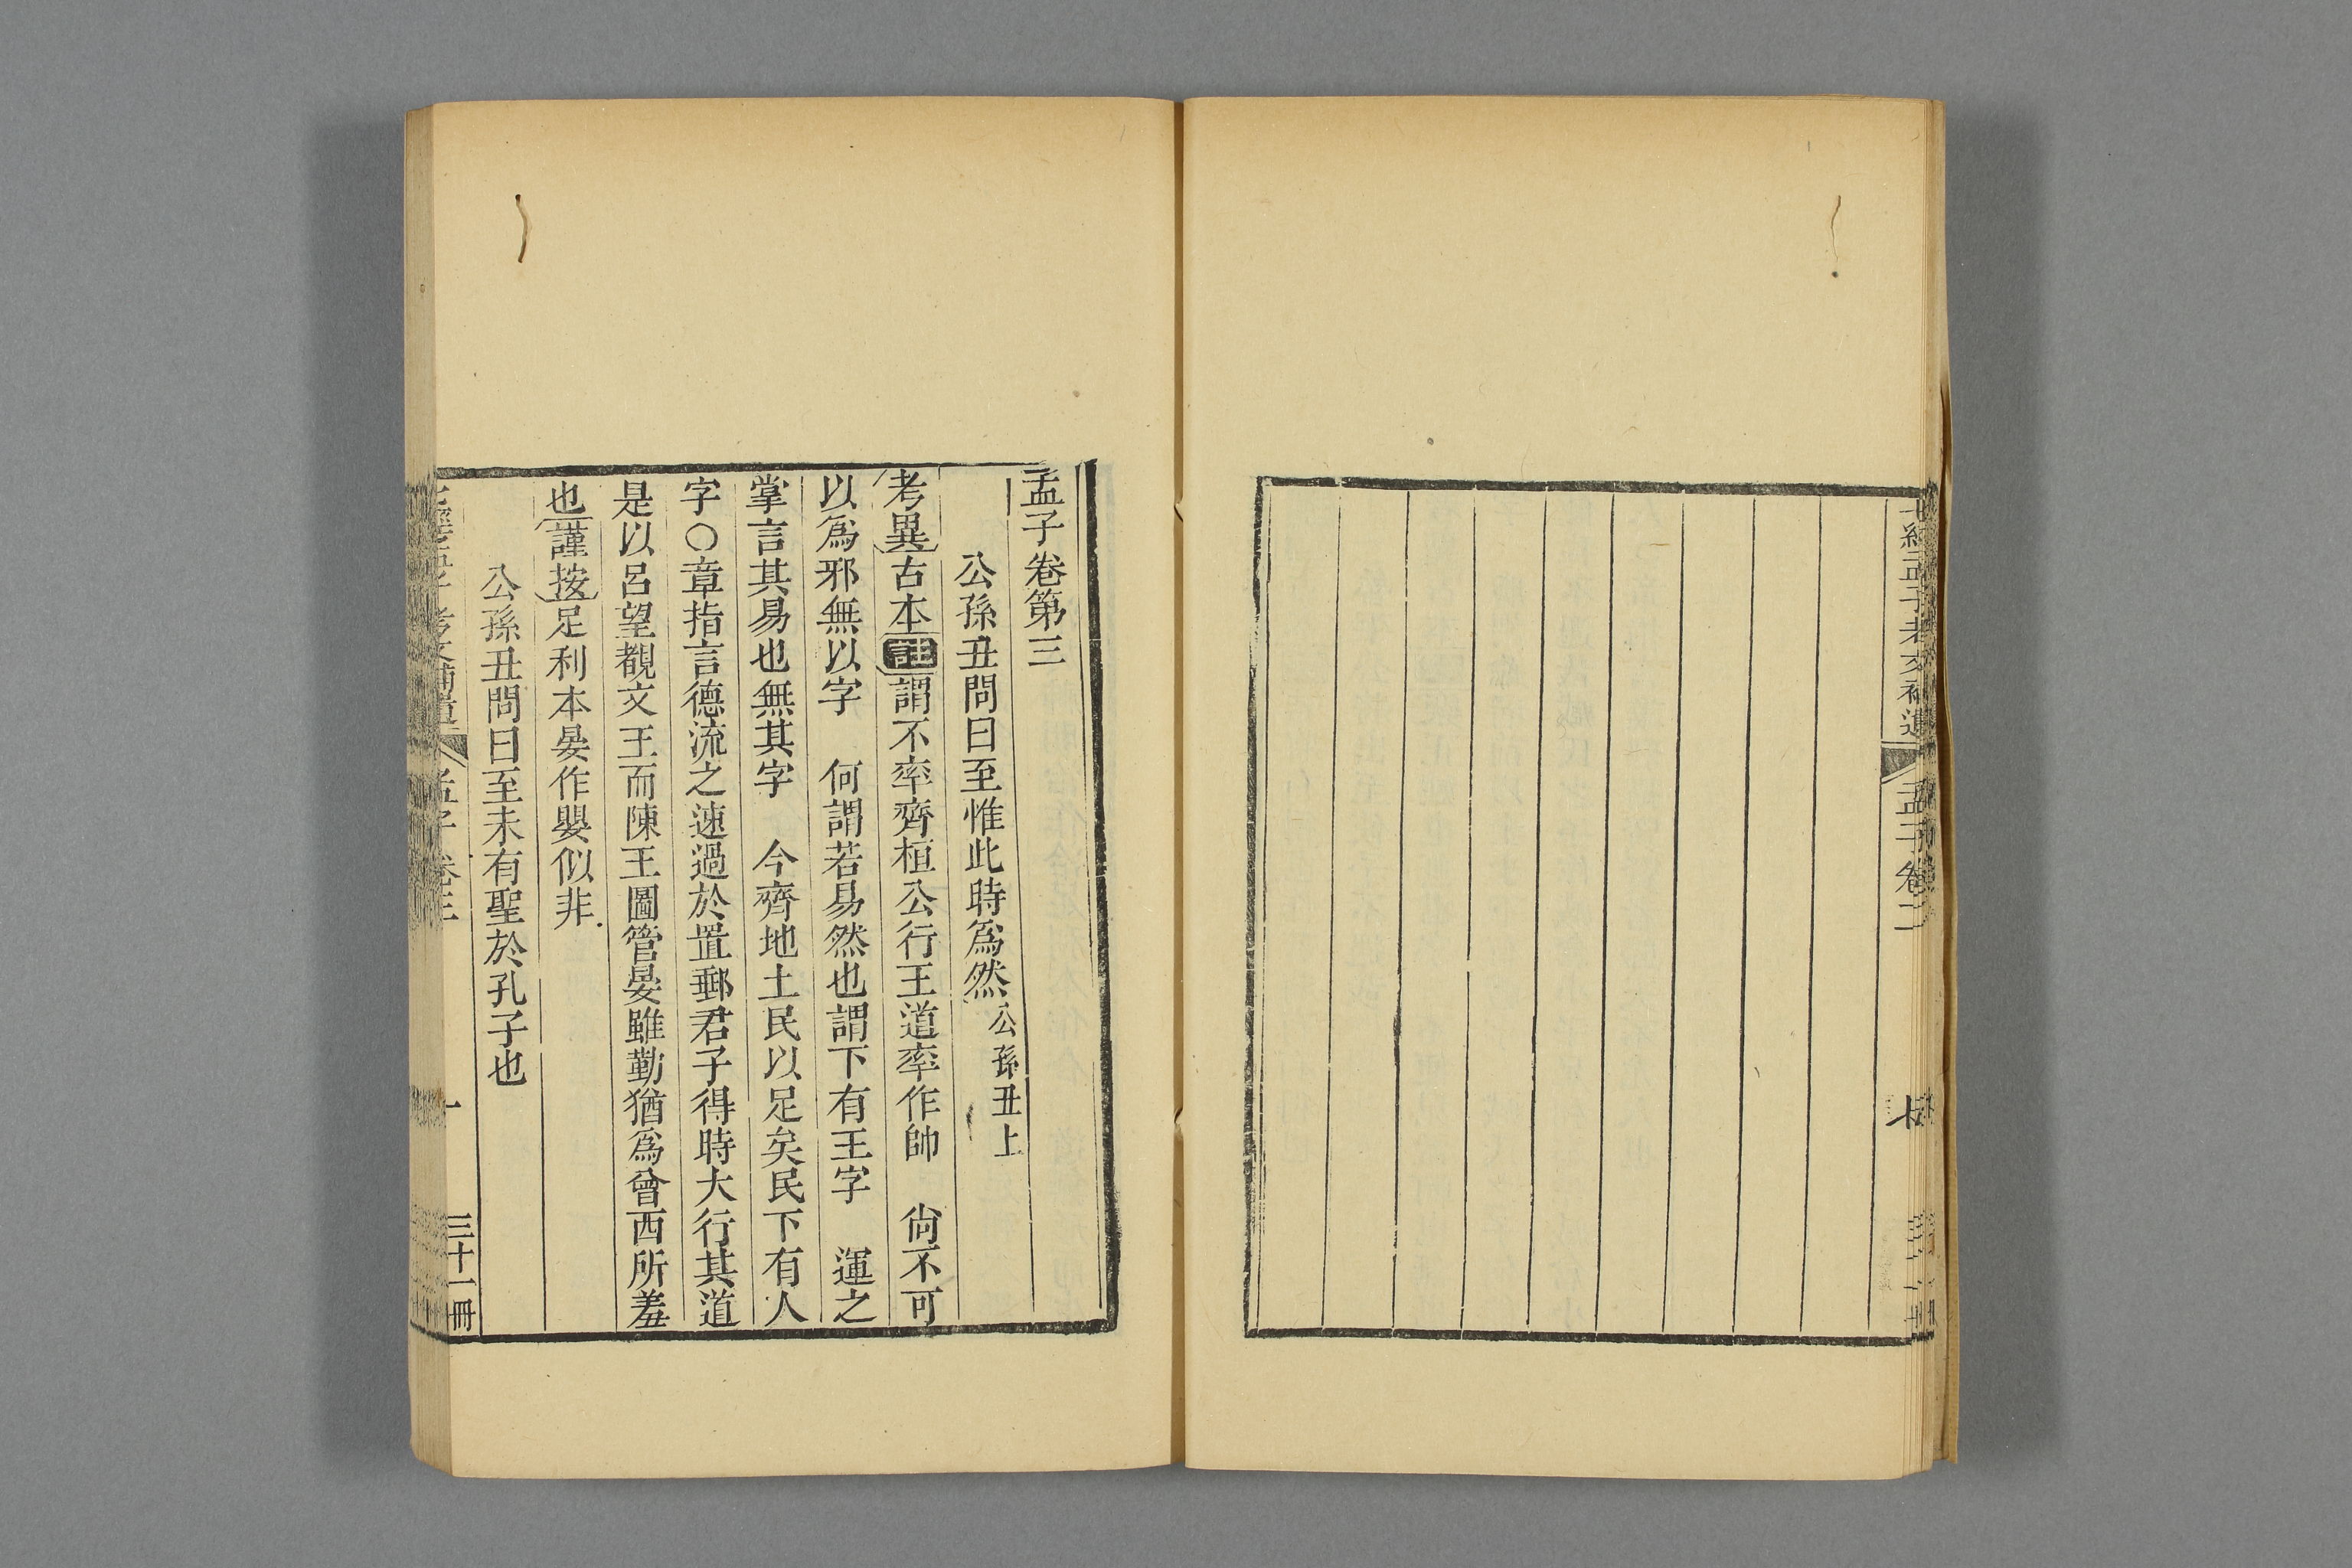 孟子考文補遺 孟子卷二
孟子卷第三
公孫丑問曰至惟此時爲然公孫丑上
考異古本註謂不率齊桓公行王道率作帥 尙不可
以爲邪無以字 何謂若易然也謂下有王字 運之
掌言其易也無其字 今齊地土民以足矣民下有人
字○章指言德流之速過於置郵君子得時大行其道
是以呂望覩文王而陳王圖管晏雖勤猶爲曾西所羞
也謹按足利本晏作嬰似非
公孫丑問曰至未有聖於孔子也
考文補遺 孟子 卷三 一 三十一冊